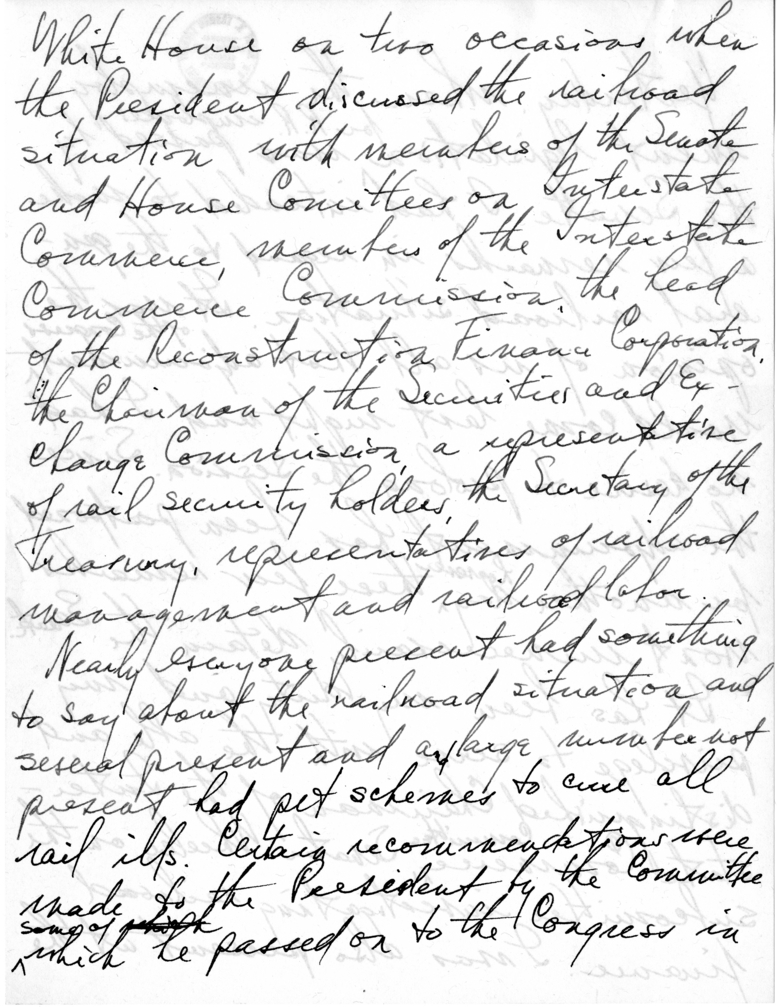 White House on two occasions when
the President discussed the railroad
situation with members of the Senate
and House Comittees on Interstate
Commerce, members of the Interstate
Commerce Commission, the head
of the Reconstruction Finance Corporation,
the Chairman of the Securities and Ex-
change Commission, a representative
of rail security holders, the Secretary of the
Treasury, representatives of railroad
management and railroad labor.
Nearly everyone present had something
to say about the railroad situation and
several present and a large number not
present had pet schemes to cure all
rail ills. Certain recommendations were
made to the President by the Committee
some of which
which he passed on to the Congress in